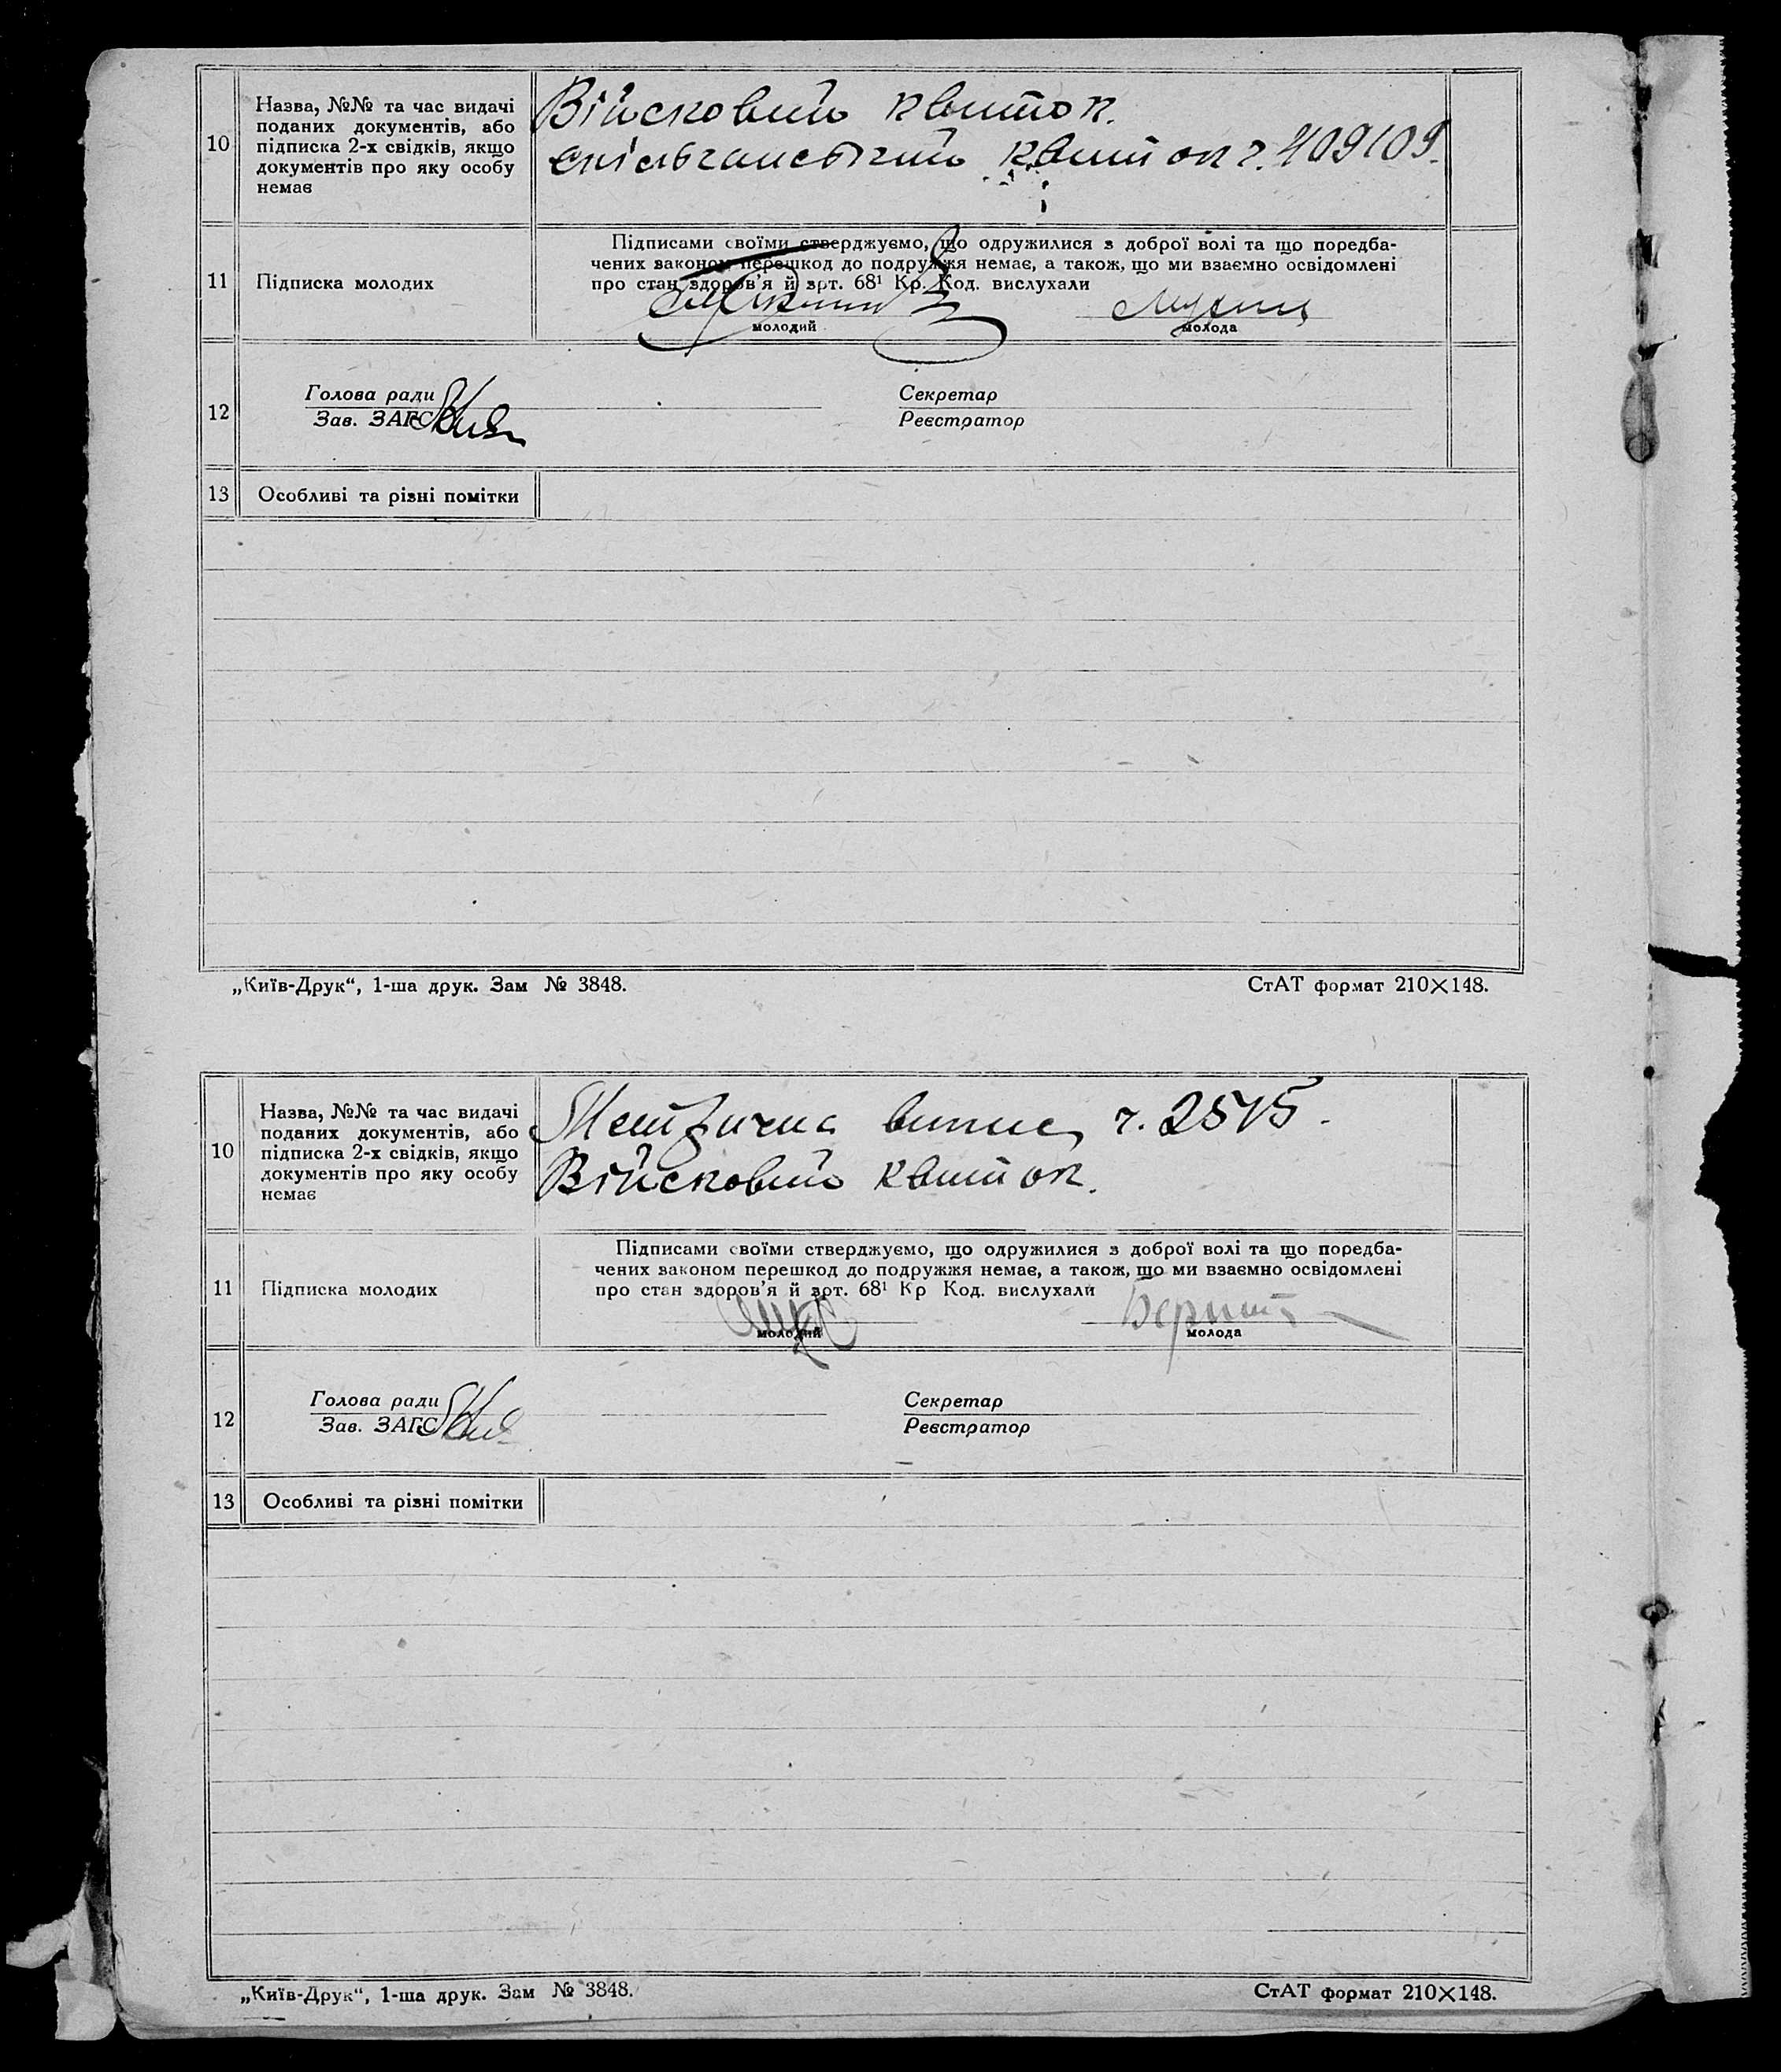 10
Назва, №№ та час видачі
поданих документів, або
підписка 2-х свідків, якщо
документів про яку особу
немає
Військовий квиток.
спільчанський квиток ч. 409109.
11
Підписка молодих
Підписами своїми стверджуємо, що одружилися з доброї волі та що поредба-
чених законом перешкод до подружжя немає, а також, що ми взаємно освідомлені
про стан здоров'я й арт. 68¹ Кр. Код. вислухали
молодий
молода
12
Голова ради
Зав. ЗАГС
Секретар
Реєстратор
13
Особливі та різні помітки
„Київ-Друк“, 1-ша друк. Зам № 3848.
СтАТ формат 210×148.
10
Назва, №№ та час видачі
поданих документів, або
підписка 2-х свідків, якщо
документів про яку особу
немає
Метрична випис ч. 2515.
Військовий квиток.
11
Підписка молодих
Підписами своїми стверджуємо, що одружилися з доброї волі та що поредба-
чених законом перешкод до подружжя немає, а також, що ми взаємно освідомлені
про стан здоров'я й арт. 68¹ Кр Код. вислухали
молодий
молода
12
Голова ради
Зав. ЗАГС
Секретар
Реєстратор
13
Особливі та різні помітки
„Київ-Друк“, 1-ша друк. Зам № 3848.
СтАТ формат 210×148.